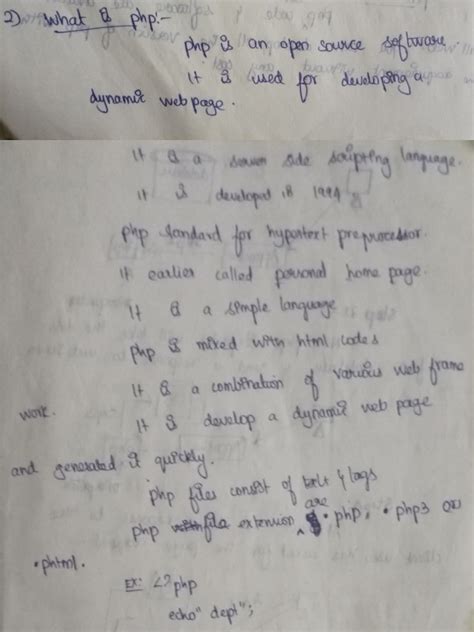 2) What is php:-
php is an open source software.
It is used for developing a
dynamic web page.
It is a server side scripting language.
It is developed is 1994
php standard for hypertext preprocessor.
It earlier called personal home page.
It is a simple language
php is mixed with html codes
It is a combination of various web frame
work.
It is develop a dynamic web page
and generated it quickly.
php files consist of text & tags
php file extension are .php, .php3 or
.phtml.
Ex: <?php
echo" dept";